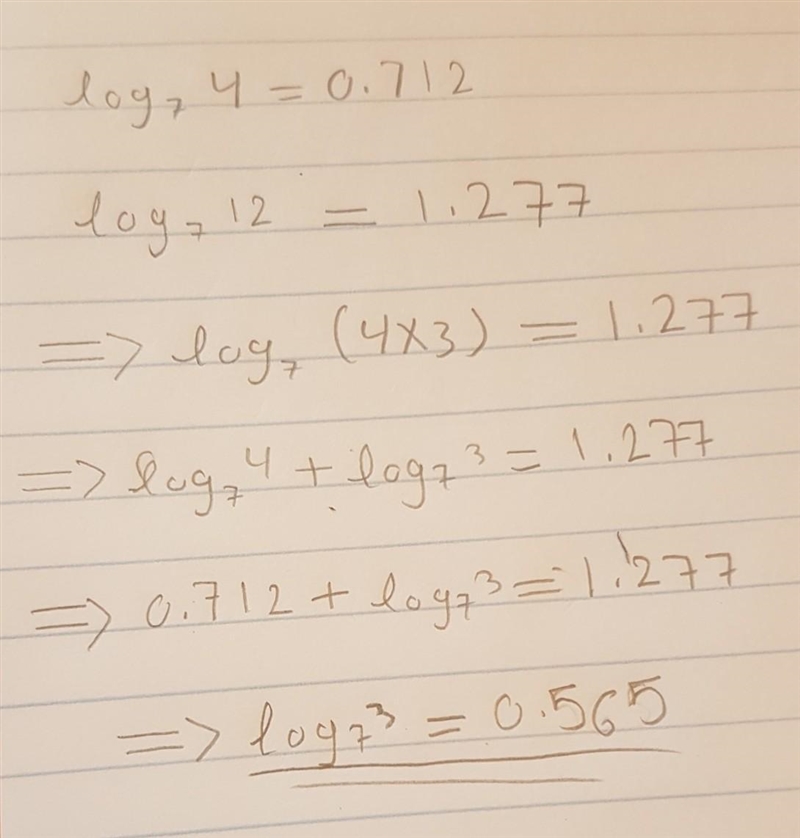 log₇ 4 = 0.712
log₇ 12 = 1.277
=> log₇ (4×3) = 1.277
=> log₇ 4 + log₇ 3 = 1.277
=> 0.712 + log₇ 3 = 1.277
=> log₇ 3 = 0.565